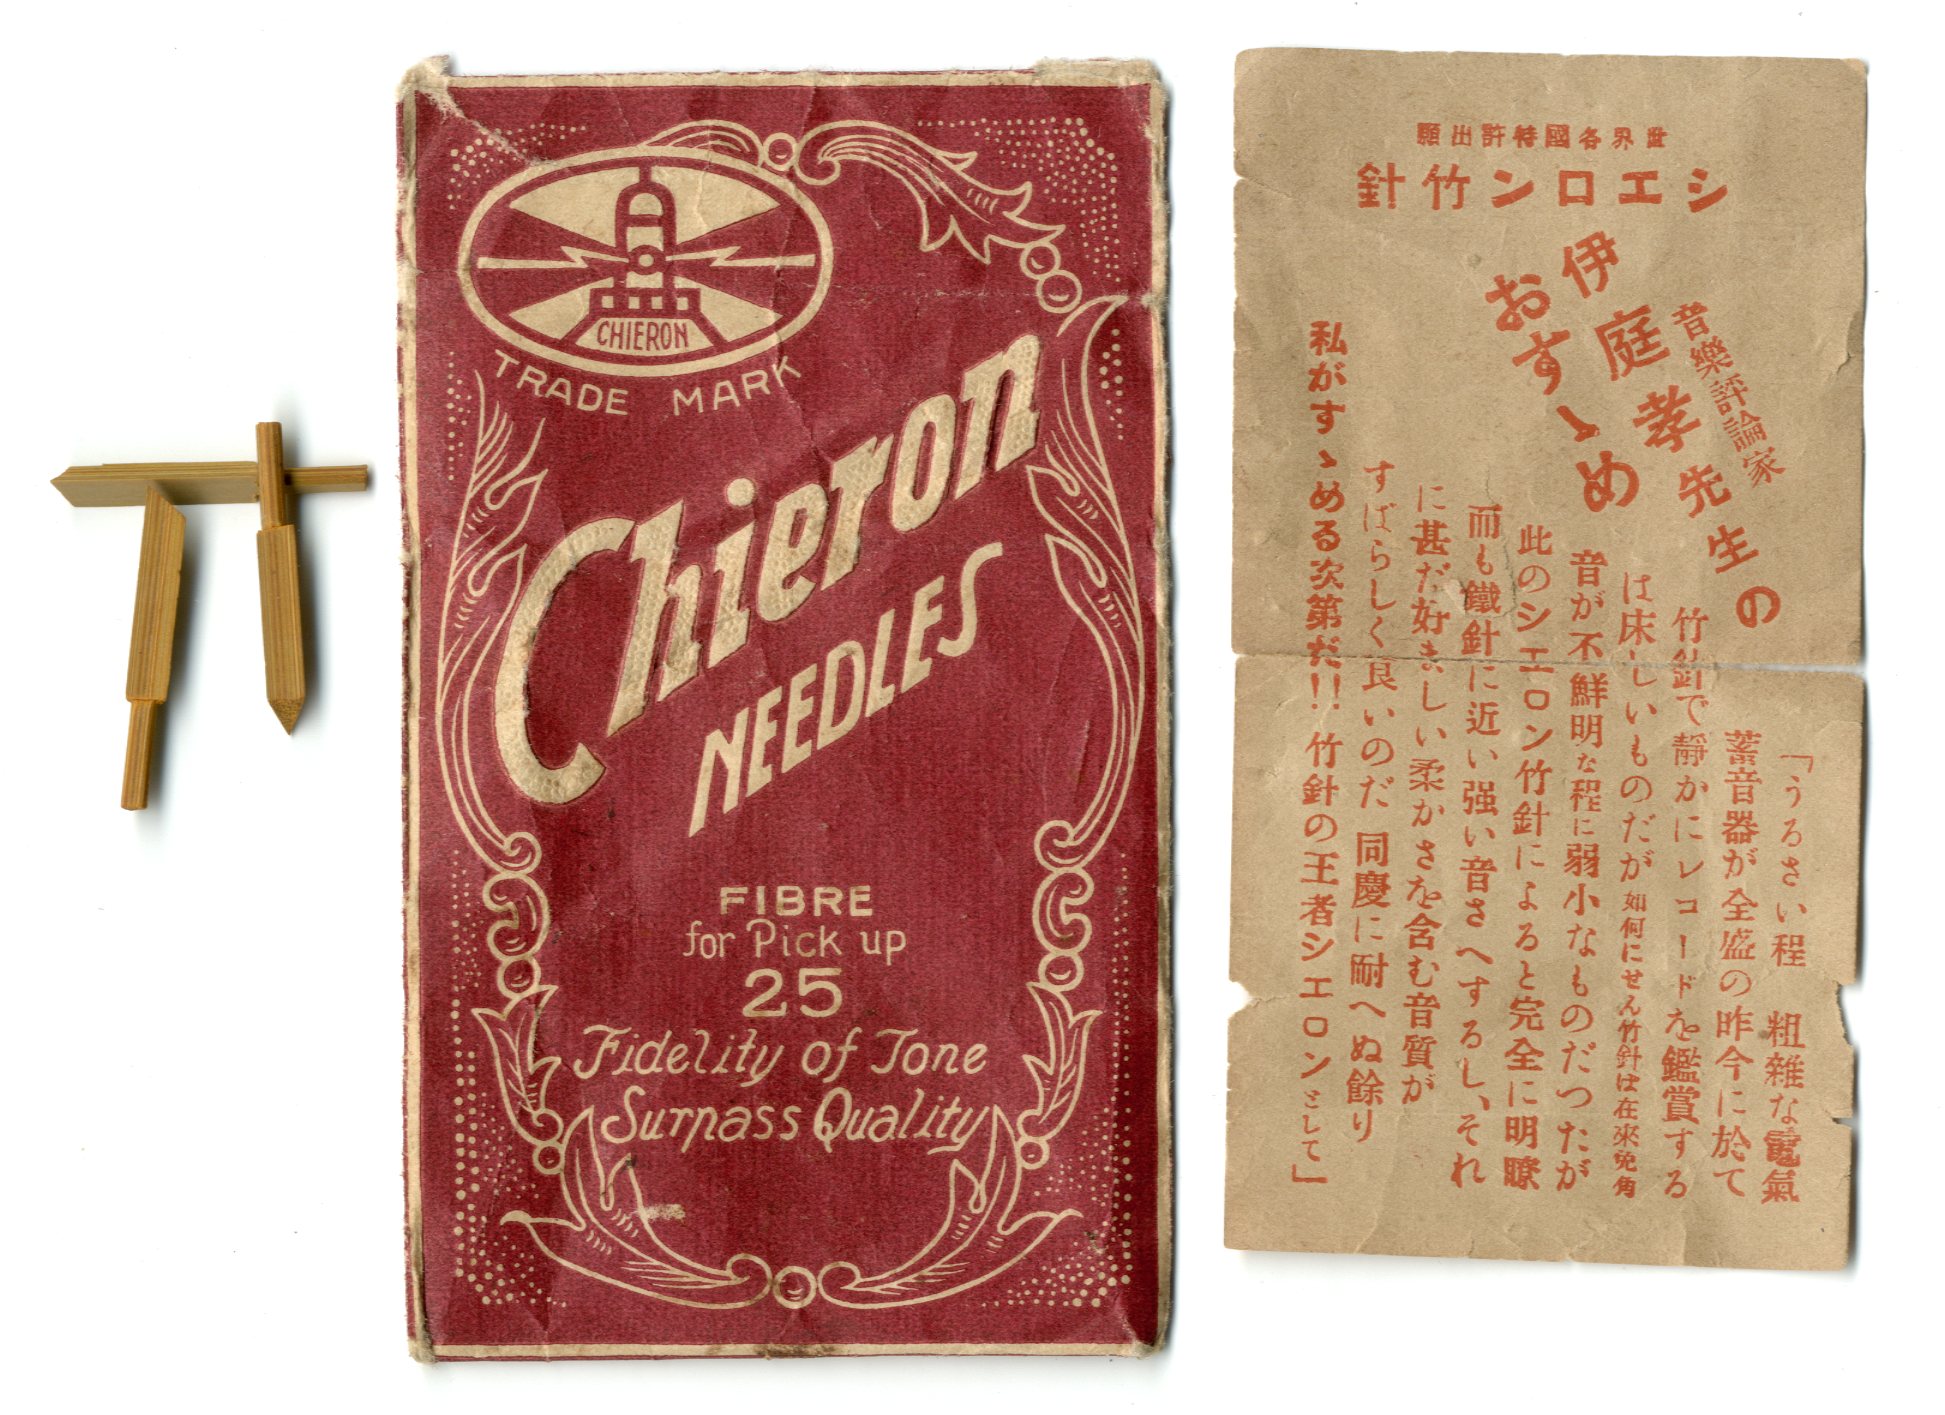 CHIERON
TRADE MARK
Chieron
NEEDLES
FIBRE
for Pick up
25
Fidelity of Tone
Surpass Quality
世界各國特許出願
シエロン竹針
音樂評論家
伊庭孝先生の
おすゝめ
「うるさい程 粗雜な電氣
蓄音器が全盛の昨今に於て
竹針で靜かにレコードを鑑賞する
は床しいものだが如何にせん竹針は在來兎角
音が不鮮明な程に弱小なものだつたが
此のシエロン竹針によると完全に明瞭
而も鐵針に近い强い音さへするし、それ
に甚だ好ましい柔かさを含む音質が
すばらしく良いのだ 同慶に耐へぬ餘り
私がすゝめる次第だ!! 竹針の王者シエロンとして」